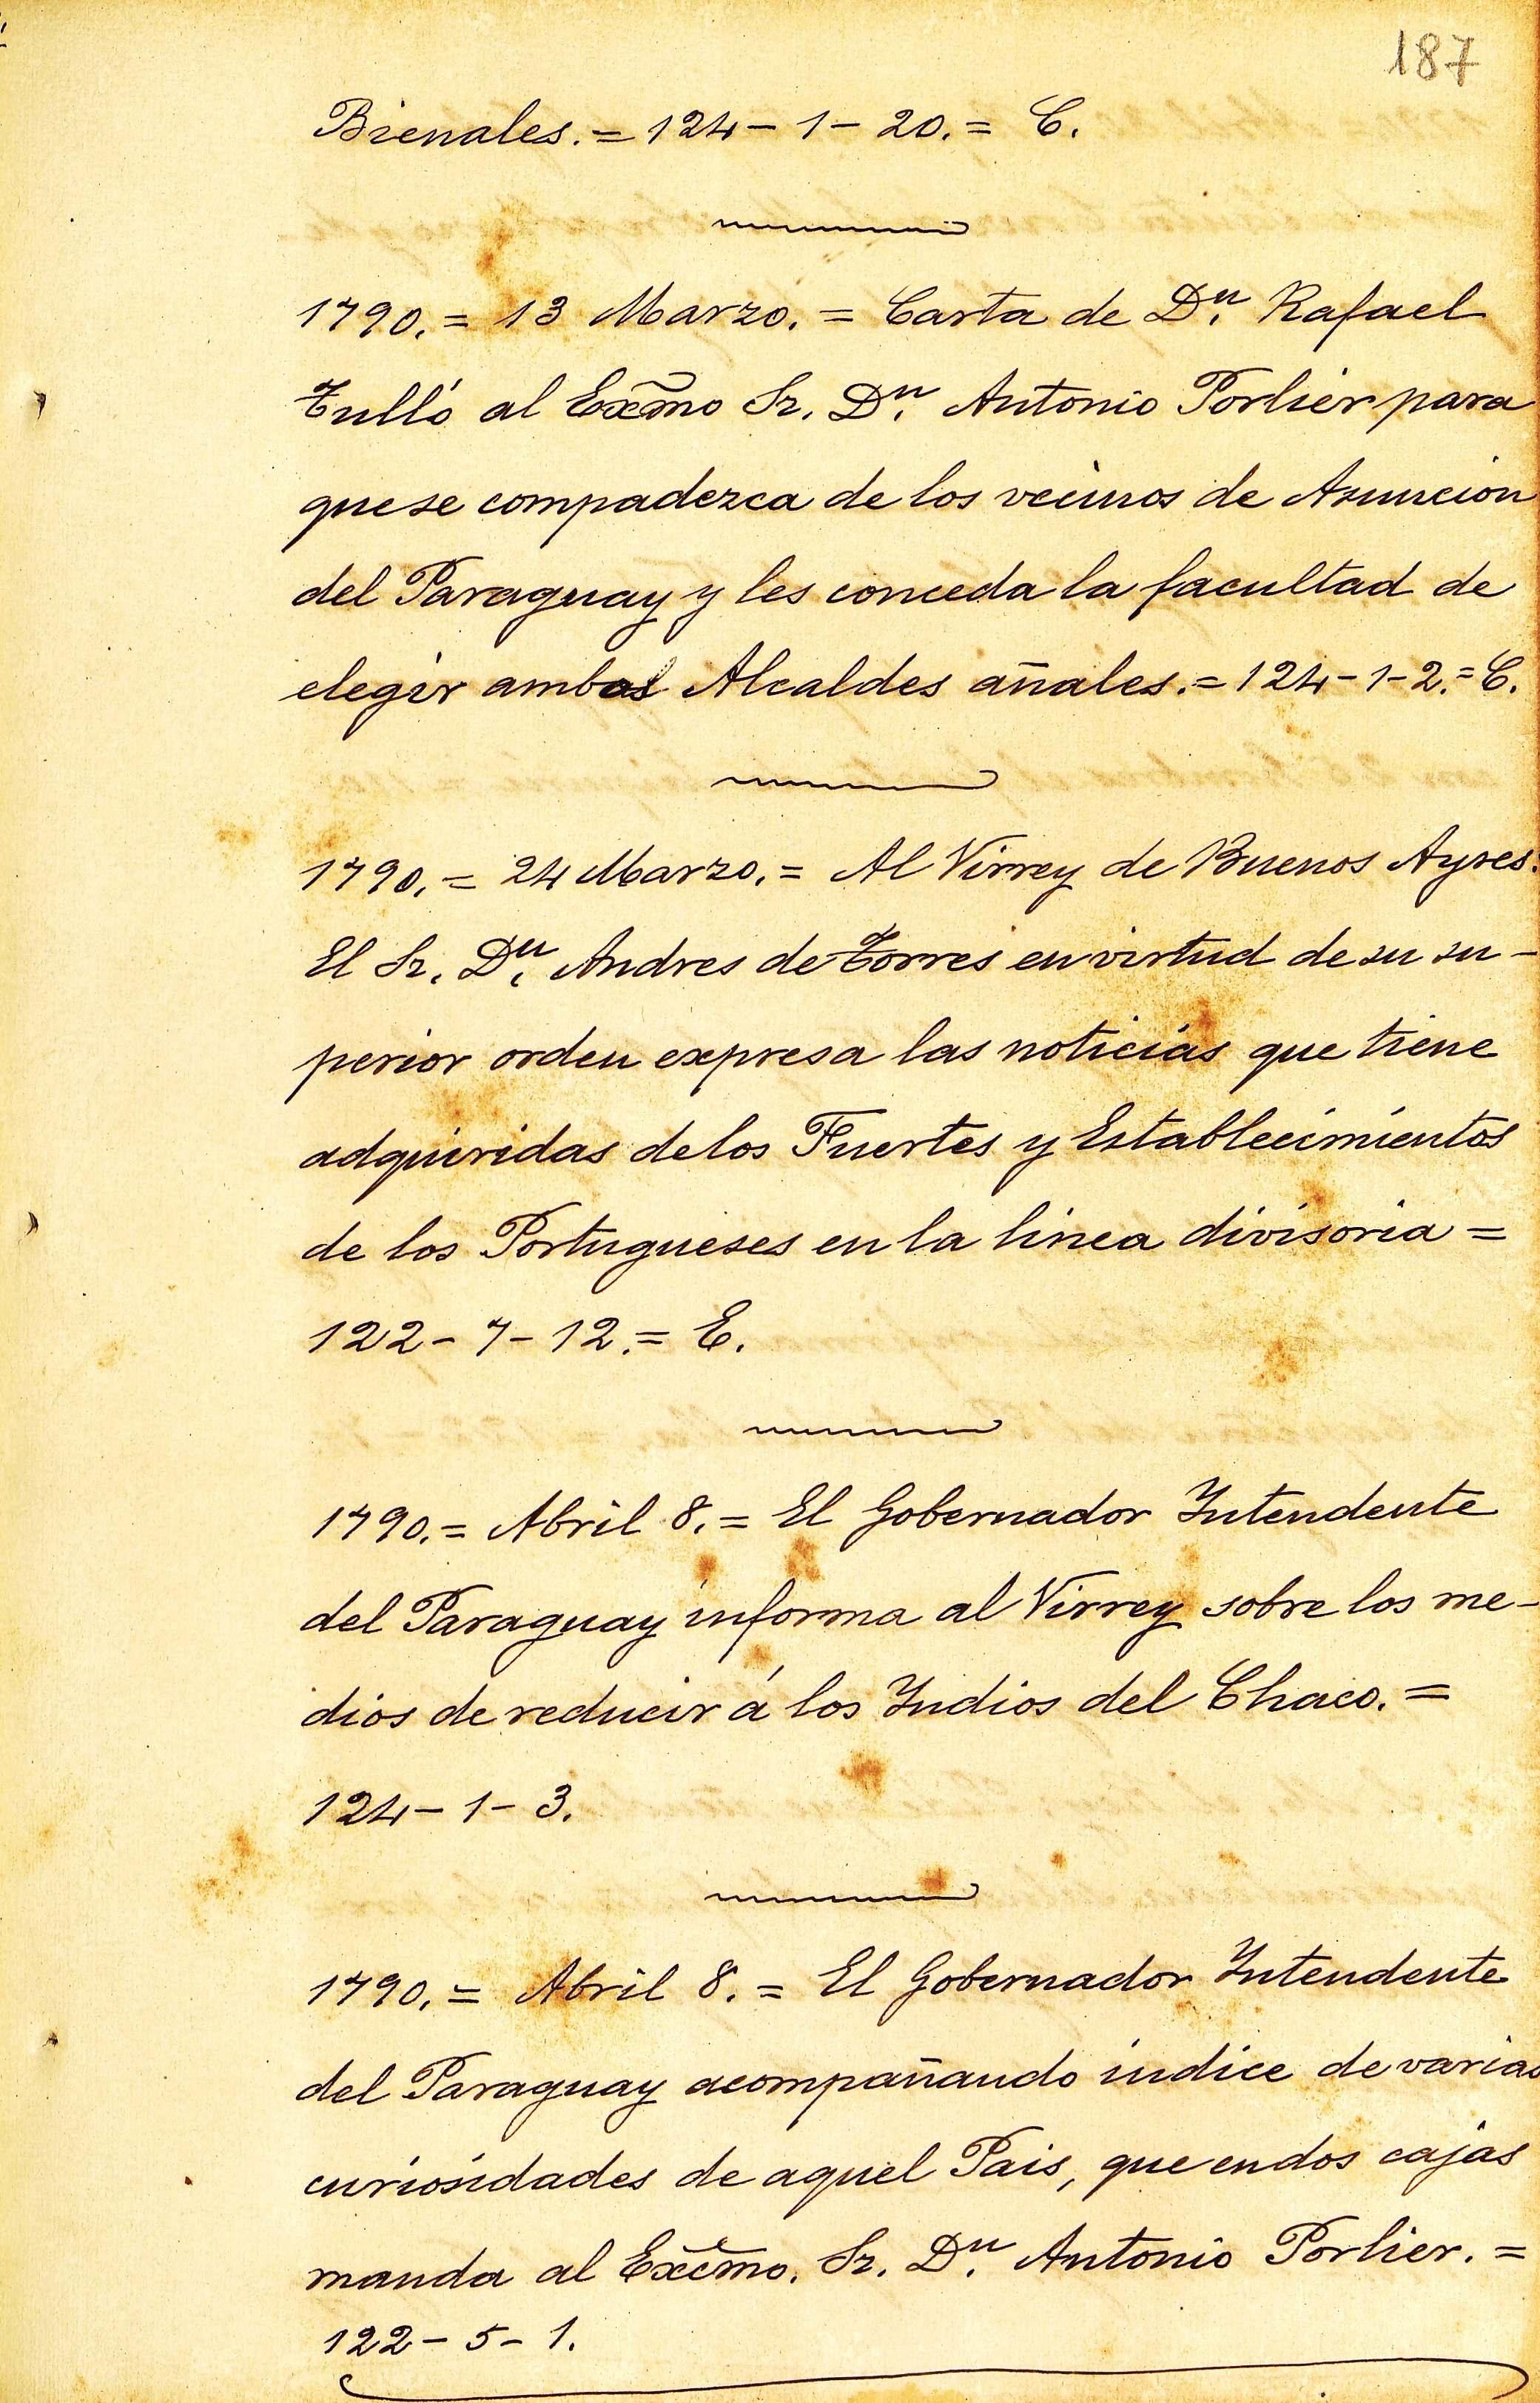 187
Bienales. = 124 - 1 - 20. = C.
1790. = 13 Marzo. = Carta de Dn. Rafael
Tulló al Excmo Sr. Dn. Antonio Porlier para
que se compadezca de los vecinos de Asuncion
del Paraguay y les conceda la facultad de
elegir ambos Alcaldes añales. = 124 - 1 - 2. = C.
1790. = 24 Marzo. = Al Virrey de Buenos Ayres.
El Sr. Dn. Andres de Torres en virtud de su su-
perior orden expresa las noticias que tiene
adquiridas de los Fuertes y Establecimientos
de los Portugueses en la linea divisoria =
122 - 7 - 12. = E.
1790. = Abril 8. = El Gobernador Intendente
del Paraguay informa al Virrey sobre los me-
dios de reducir á los Indios del Chaco. =
124 - 1 - 3.
1790. = Abril 8. = El Gobernador Intendente
del Paraguay acompañando indice de varias
curiosidades de aquel Pais, que en dos cajas
manda al Excmo. Sr. Dn. Antonio Porlier. =
122 - 5 - 1.